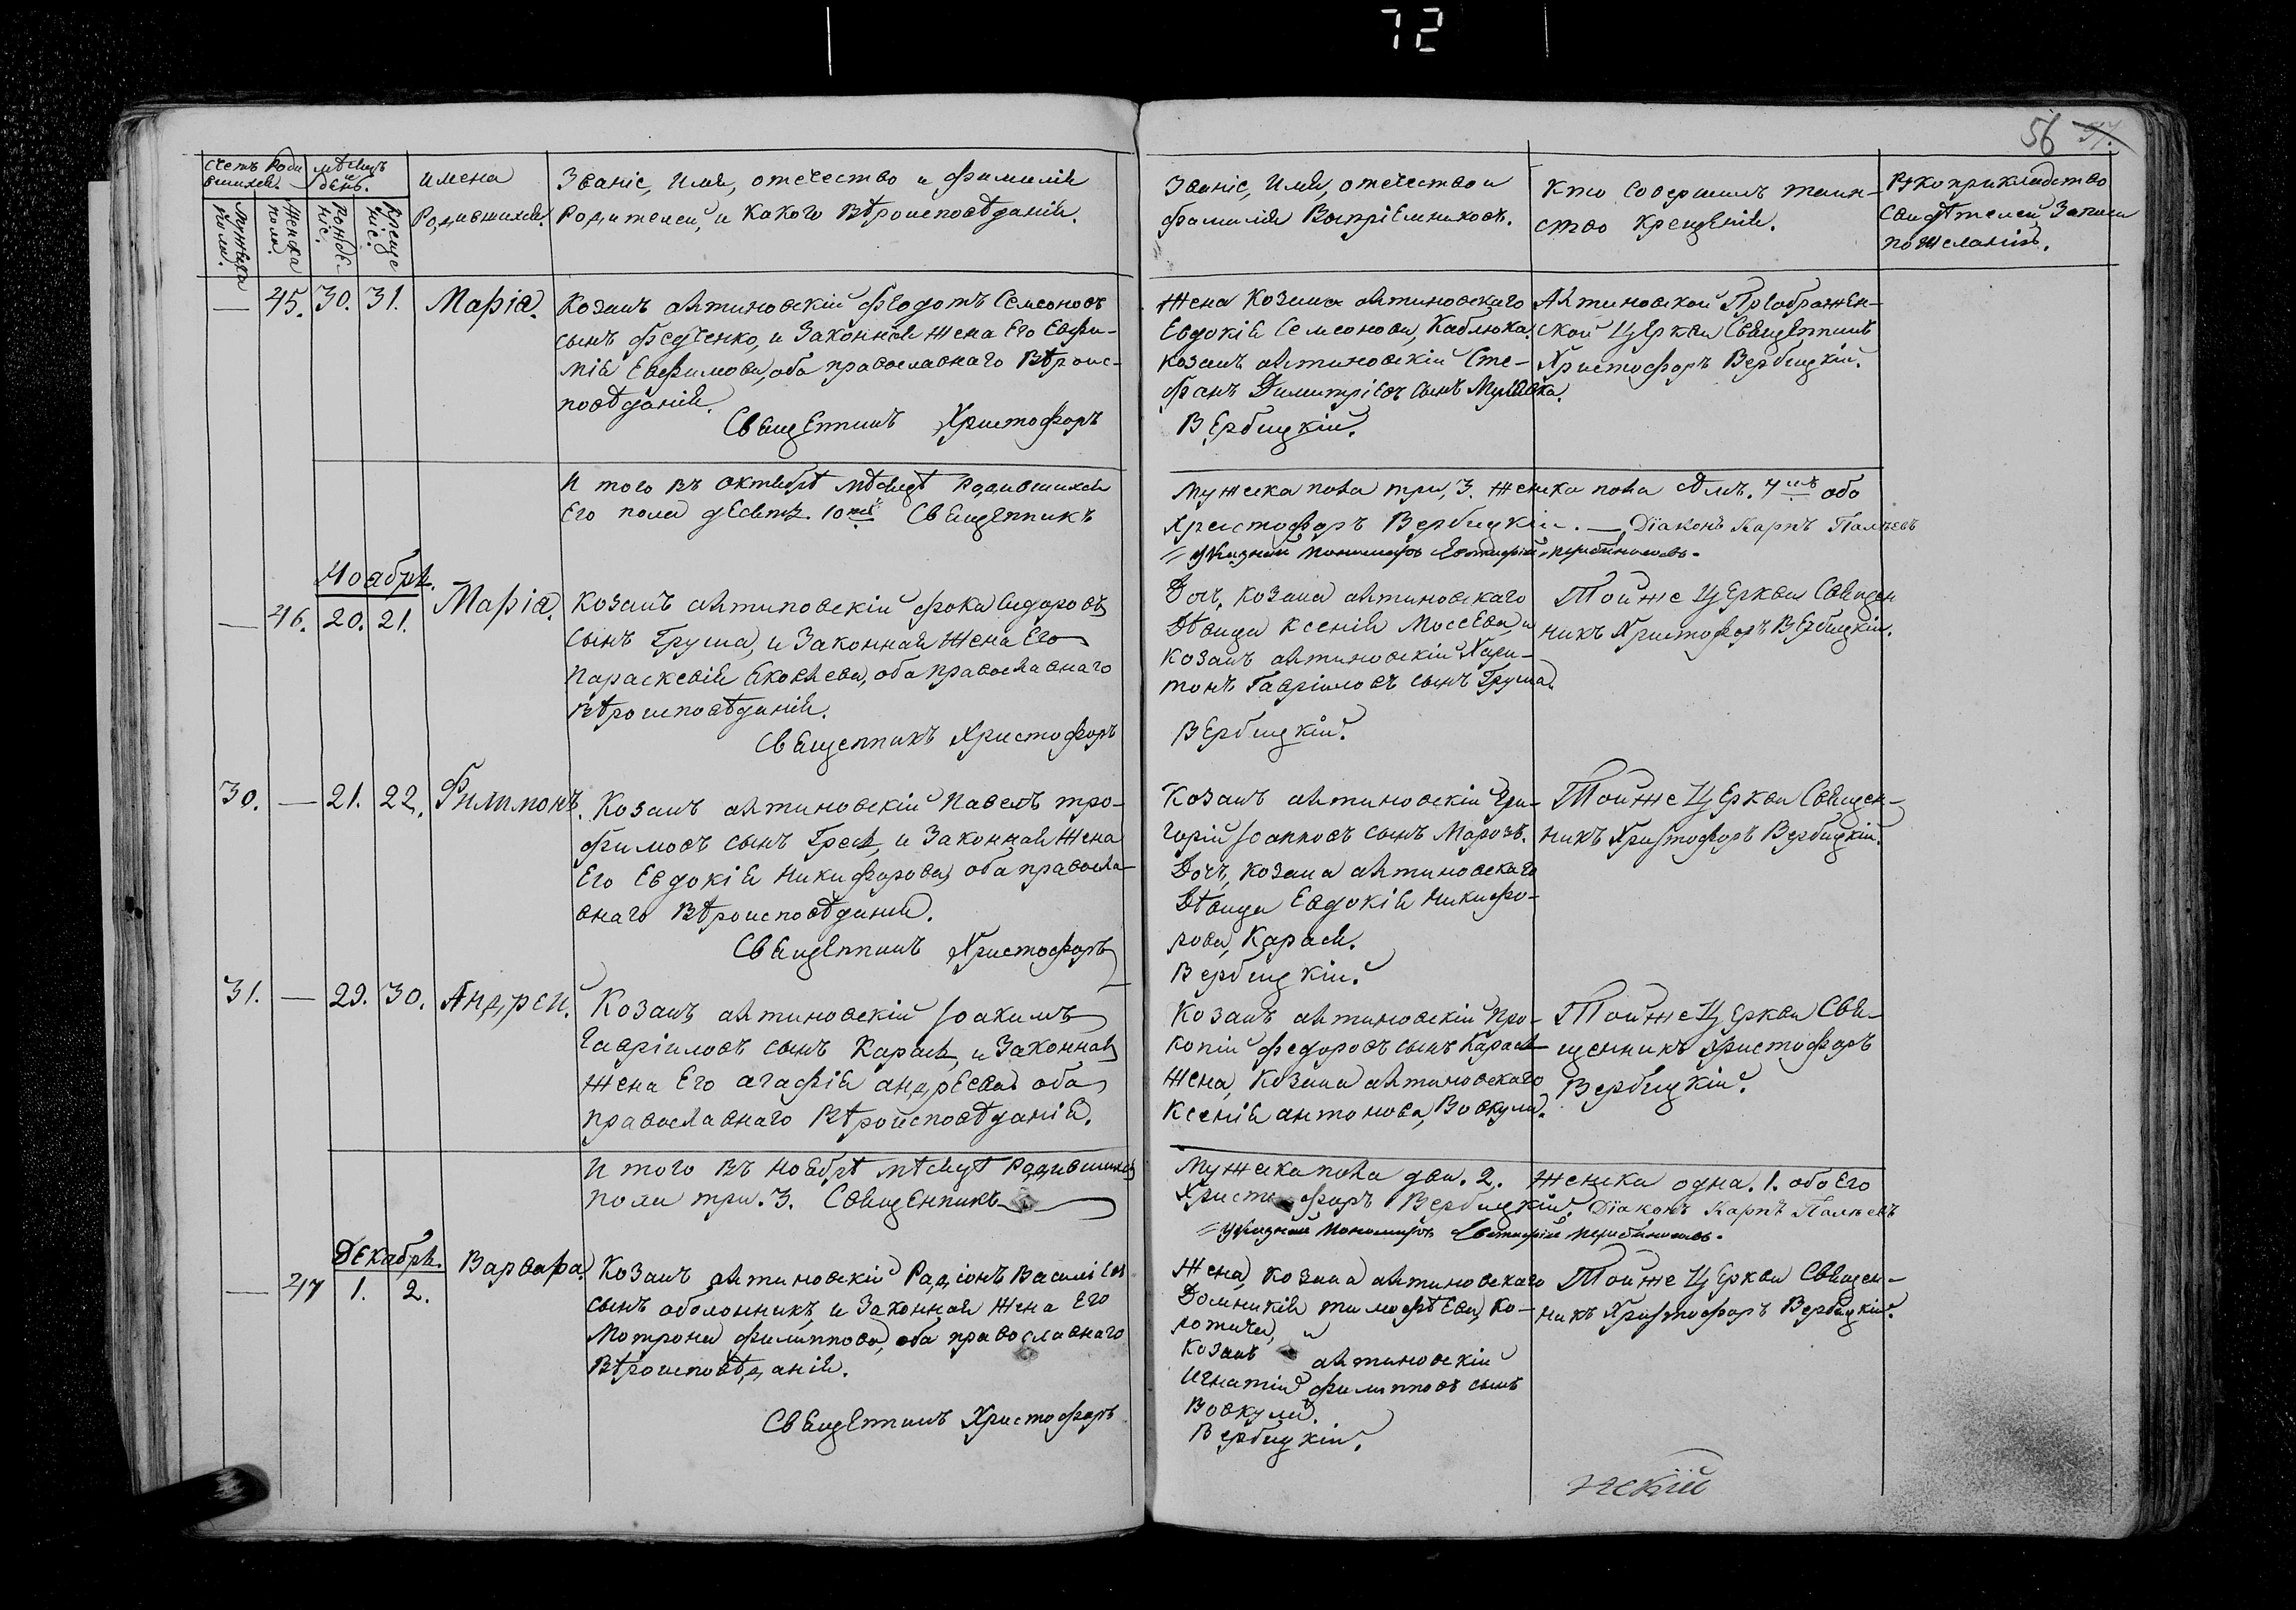 72
56 57.
Счетъ Роди
вшихся.
мѣсяцъ
и
день.
Имена
Родившихся.
Званіе, Имя, отечество и фамилія
Родителей, и какого Вѣроисповѣданія.
Мужеска
пола.
Женска
пола.
Рожде-
ніе.
Креще
ніе.
Званіе, Имя, отечество и
фамилія Воспріемниковъ.
Кто Совершилъ таин-
ство крещенія.
Рукоприкладство
Свидѣтелей Записи
по желанію.
— 45. 30. 31. Марія.
Козакъ литиновскій Феодотъ Семеоновъ
сынъ Федченко, и Законная жена Его Евфи-
мія Евфимова, оба православнаго Вѣроис-
повѣданія.
Священникъ Христофоръ
Жена Козака литиновскаго
Евдокія Семеонова, Каблюка.
козакъ литиновскій Сте-
фанъ Димитріевъ сынъ
Вербицкій.
Литиновской Преображен-
ской Церкви Священникъ
Христофоръ Вербицкій.
И того въ октябрѣ мѣсяцѣ Родившихся
Его пола десять. 10ть Священникъ
Мужеска пола три, 3. женска пола 7мъ обо
Христофоръ Вербицкій. — Діаконъ Карпъ
Указный Пономарь Евстафій
Ноябрь.
— 46. 20. 21. Марія.
Козакъ литиновскій Фока Сидоровъ
Сынъ Груша, и Законная Жена Его
Параскевія Яковлева, оба православнаго
Вѣроисповѣданія.
Священникъ Христофоръ
Дочь, козака литиновскаго
Дѣвица Ксенія Мосеева, и
Козакъ литиновскій Хари-
тонъ Гавріиловъ сынъ Груша.
Вербицкій.
Тойже Церкви Священ
никъ Христофоръ Вербицкій.
30. — 21. 22. Филимонъ.
Козакъ литиновскій Павелъ тро-
фимовъ сынъ и Законная Жена
Его Евдокія Никифорова, оба правосла-
внаго Вѣроисповѣданія.
Священникъ Христофоръ
Козакъ литиновскій Гри-
горій Іоанновъ сынъ Морозъ.
Дочь, козака литиновскаго
Дѣвица Евдокія Никифо-
рова, Карася.
Вербицкій.
Тойже Церкви Священ-
никъ Христофоръ Вербицкій.
31. — 29. 30. Андрей.
Козакъ литиновскій Іоакимъ
Гавріиловъ сынъ Карась, и Законная
жена Его агафія андреева оба
православнаго Вѣроисповѣданія.
Козакъ литиновскій Про-
копій Федоровъ сынъ Карась
Жена, Козака литиновскаго
Ксенія антонова, Вовкула.
Тойже Церкви Свя-
щенникъ Христофоръ
Вербицкій.
И того въ ноябрѣ мѣсяцѣ Родившихся
пола три. 3. Священникъ
Мужеска пола два. 2. Женска одна. 1. обоего
Христофоръ Вербицкій. Діаконъ Карпъ
Указный Пономарь Евстафій
Декабрь.
— 47 1. 2. Варвара.
Козакъ литиновскій Радіонъ Василіев
сынъ оболонникъ, и Законная жена Его
Мотрона филиппова, оба православнаго
Вѣроисповѣданія.
Священникъ Христофоръ
Жена, козака литиновскаго
Домникія тимофѣева, Ко-
и
Козакъ литиновскій
Игнатій филипповъ сынъ
Вовкула.
Вербицкій.
Тойже Церкви Священ-
никъ Христофоръ Вербицкій.
нскій